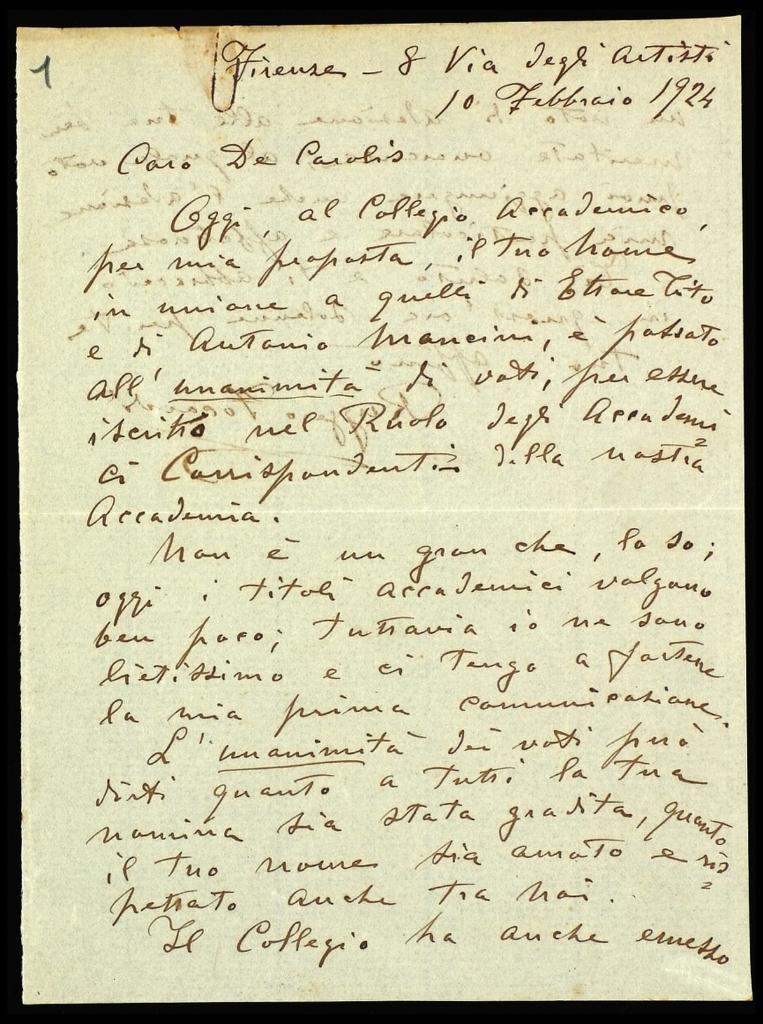 1
Firenze - 8 Via degli Artisti
10 Febbraio 1924
Caro De Carolis
Oggi, al Collegio Accademico,
per mia proposta, il tuo nome
in unione a quelli di Ettore Tito
e di Antonio Mancini, è passato
all' unanimità di voti, per essere
iscritto nel Ruolo degli Accademi
ci Corrispondenti della nostra
Accademia.
Non è un gran che, lo so;
oggi i titoli accademici valgono
ben poco; tuttavia io ne sono
lietissimo e ci tengo a fartene
la mia prima comunicazione.
L' unanimità dei voti può
dirti quanto a tutti la tua
nomina sia stata gradita, quanto
il tuo nome sia amato e ris=
pettato anche tra noi.
Il Collegio ha anche emesso